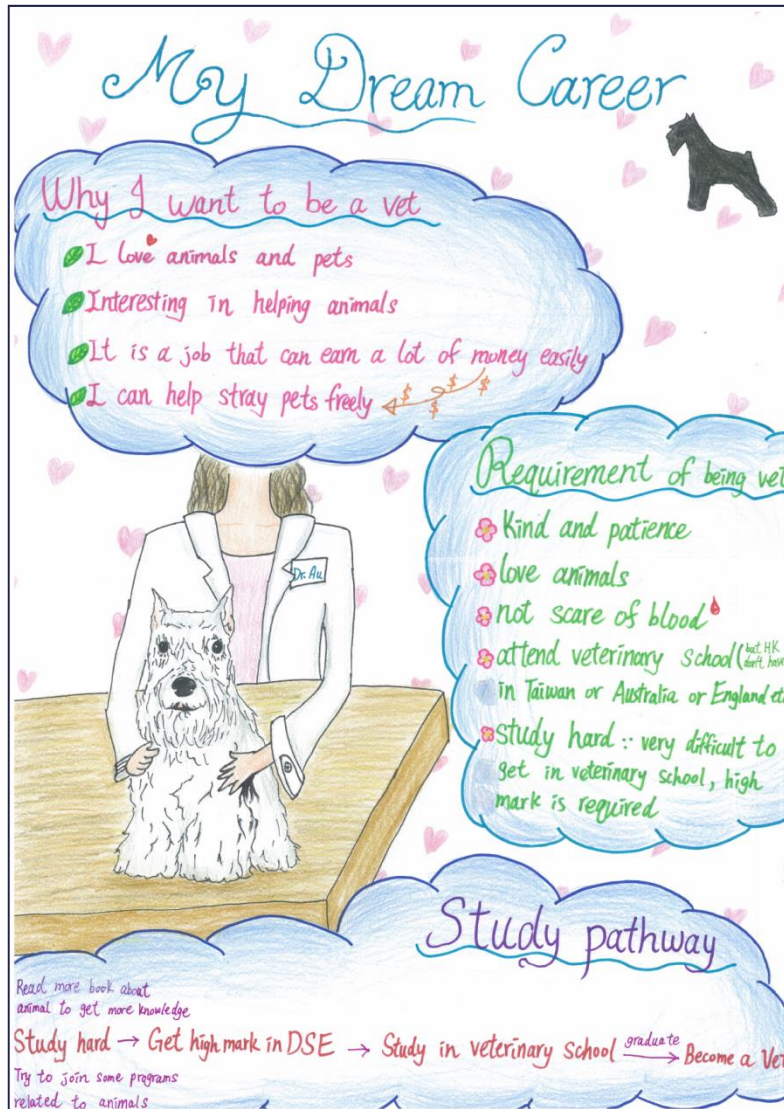 My Dream Career
Why I want to be a vet
I love animals and pets
Interesting in helping animals
It is a job that can earn a lot of money easily
I can help stray pets freely
$ $ $ $
Dr. Au
Requirement of being vet
Kind and patience
love animals
not scare of blood
attend veterinary school (but H.K
don't have
in Taiwan or Australia or England etc
study hard ∵ very difficult to
get in veterinary school, high
mark is required
Study pathway
Read more book about
animal to get more knowledge
Study hard → Get high mark in DSE → Study in veterinary school graduate → Become a Vet
Try to join some programs
related to animals